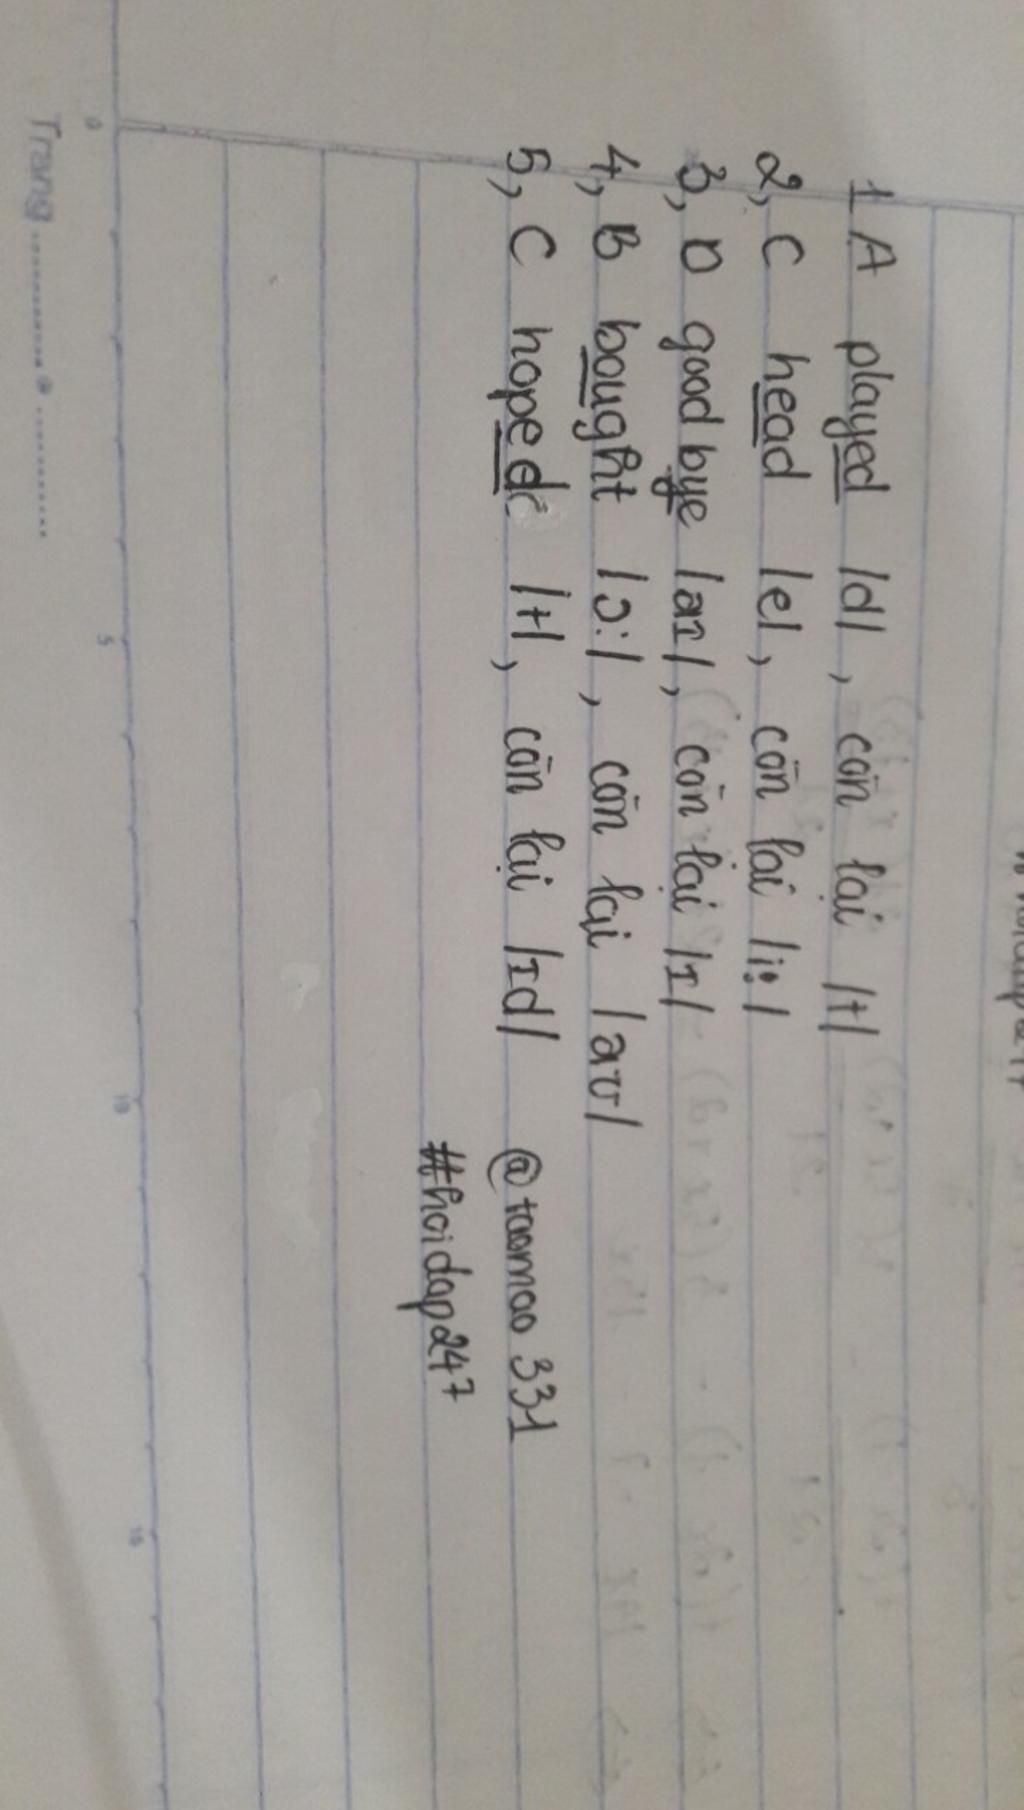 1 A played /d/, còn lại /t/
2, C head /e/, còn lại /i:/
3, D goodbye /aɪ/, còn lại /ɪ/
4, B bought /ɔ:/, còn lại /aʊ/
5, C hoped /t/, còn lại /ɪd/ @taomao331
#hoidap247
Trang
0
5
10
15